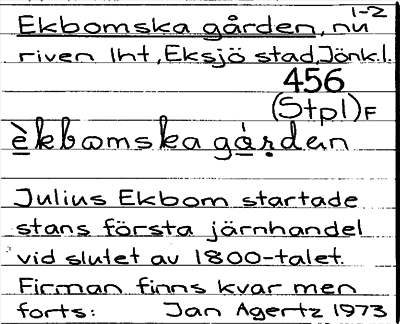 1-2
Ekbomska gården, nu
riven lht, Eksjö stad, Jönk.l.
456
(Stpl)F
èkbomska gá̱ṛden
Julius Ekbom startade
stans första järnhandel
vid slutet av 1800-talet.
Firman finns kvar men
forts: Jan Agertz 1973